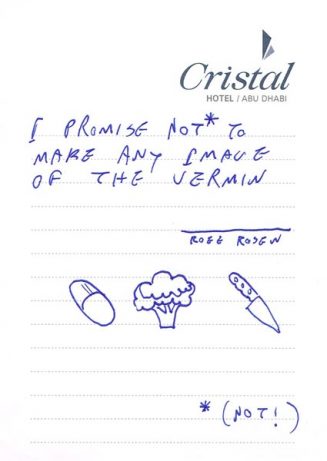 Cristal
HOTEL / ABU DHABI
I PROMISE NOT* TO
MAKE ANY IMAGE
OF THE VERMIN
ROEE ROSEN
* (NOT!)